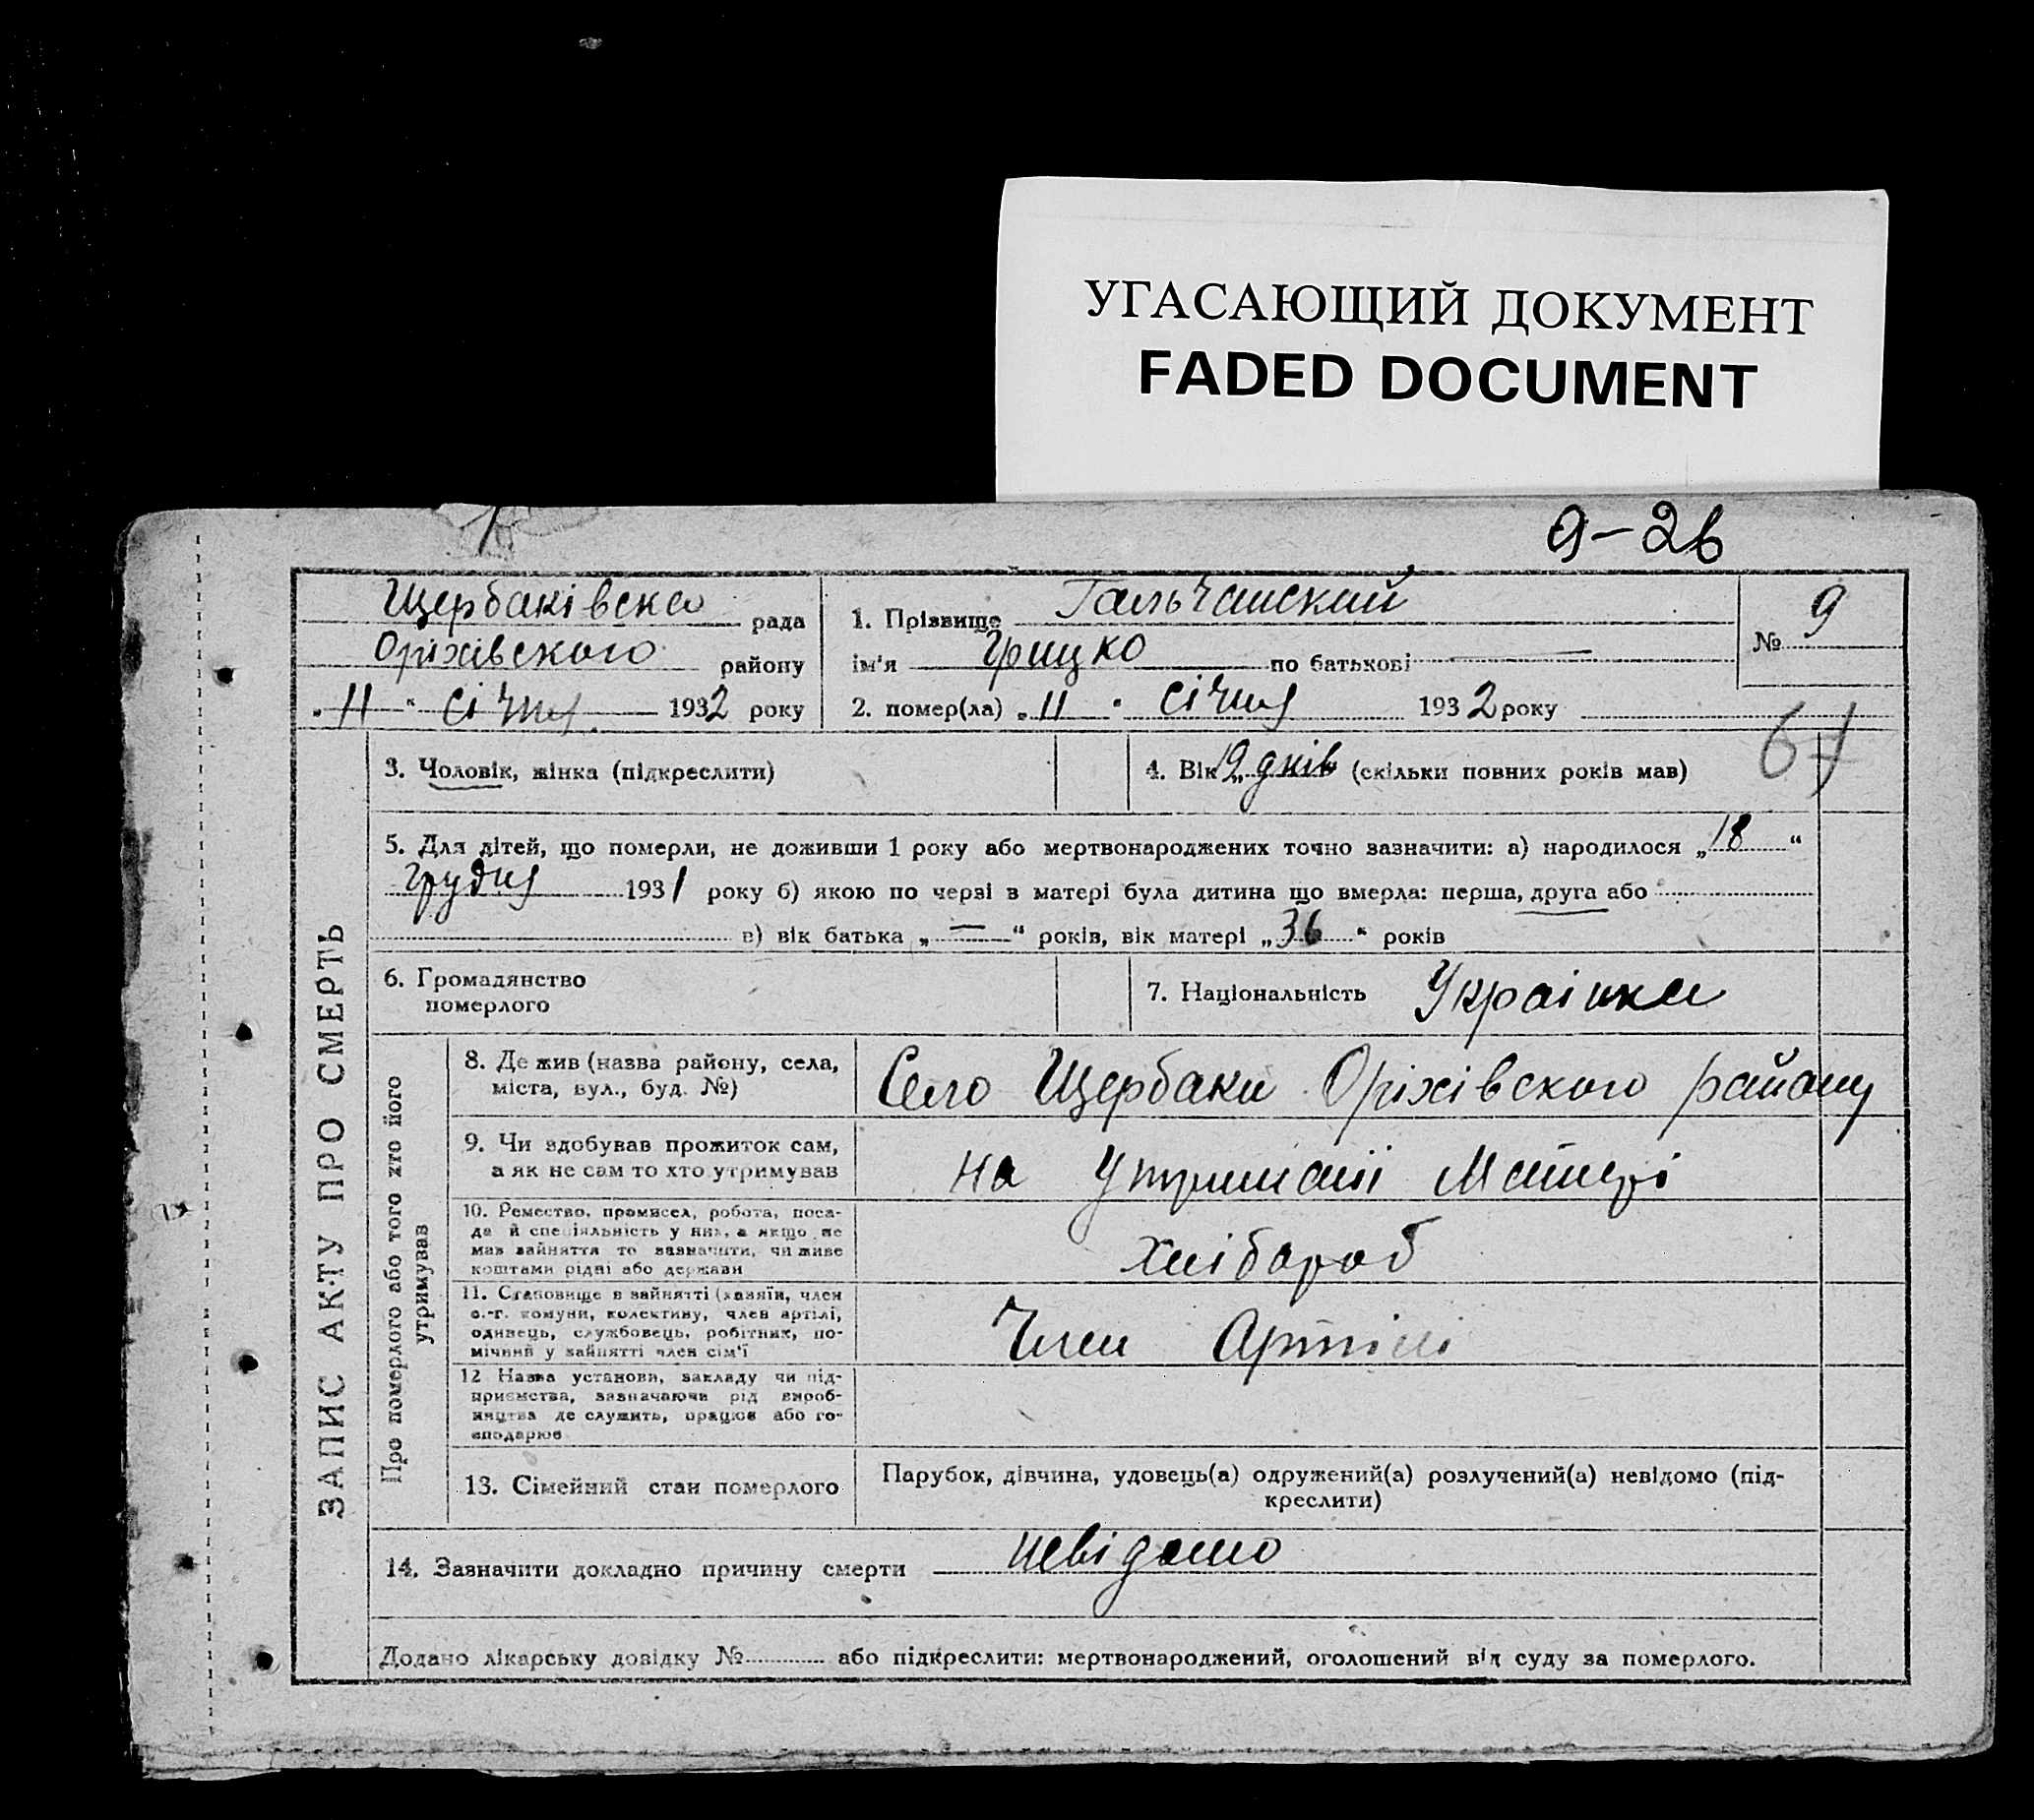 УГАСАЮЩИЙ ДОКУМЕНТ
FADED DOCUMENT
9-2в
Щербаківска рада
Оріхівского району
„11“ січня 1932 року
1. Прізвище Гальчанский
ім'я Грицко по батькові —
2. помер(ла) „11“ січня 1932 року
№ 9
67
ЗАПИС АКТУ ПРО СМЕРТЬ
3. Чоловік, жінка (підкреслити)
4. Вік „ днів (скільки повних років мав)
5. Для дітей, що померли, не доживши 1 року або мертвонароджених точно зазначити: а) народилося „18“
грудня 1931 року б) якою по черзі в матері була дитина що вмерла: перша, друга або
в) вік батька „—“ років, вік матері „36“ років
6. Громадянство
померлого
7. Національність Українка
Про померлого або того хто його
утримував
8. Де жив (назва району, села,
міста, вул., буд. №)
Село Щербаки Оріхівского району
9. Чи здобував прожиток сам,
а як не сам то хто утримував
на утриманії Матері
10. Ремество, промисел, робота, поса-
да й спеціяльність у них, а якщо не
мав зайняття то зазначити, чи живе
коштами рідні або держави
хлібороб
11. Становище в зайнятті (хазяїн, член
с.-г. комуни, колективу, член артілі,
одинець, службовець, робітник, по-
мічний у зайнятті член сім'ї
Член Артілі
12 Назва установи, закладу чи під-
приємства, зазначаючи рід вироб-
ництва де служить, працює або го-
сподарює
13. Сімейний стан померлого
Парубок, дівчина, удовець(а) одружений(а) розлучений(а) невідомо (під-
креслити)
14. Зазначити докладно причину смерти невідомо
Додано лікарську довідку № або підкреслити: мертвонароджений, оголошений від суду за померлого.